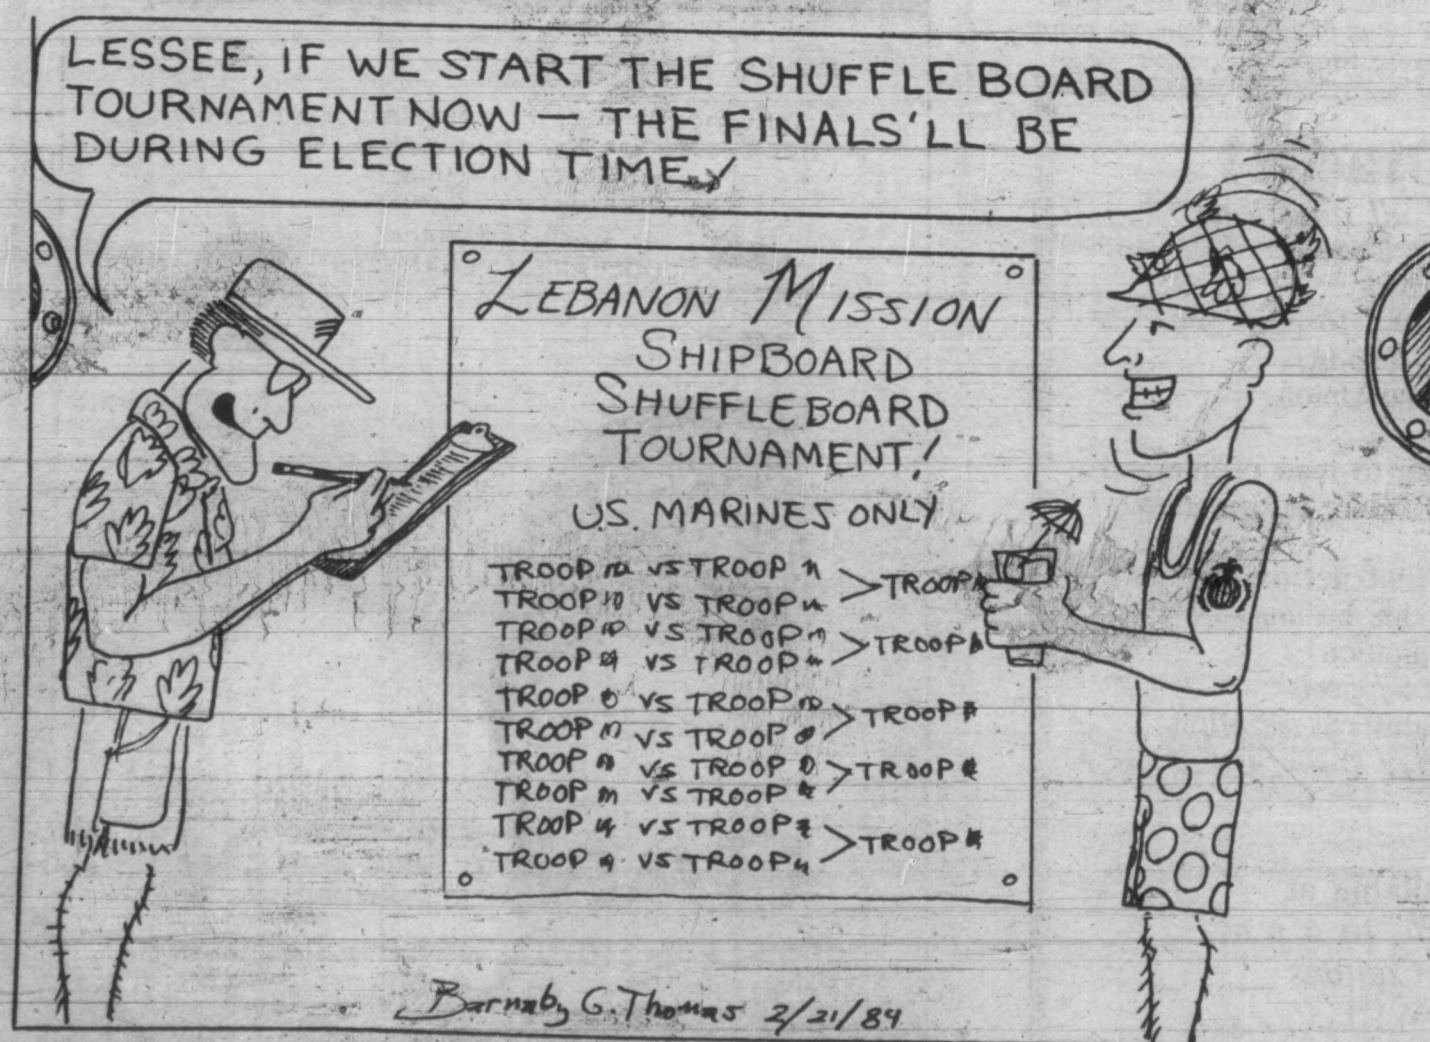 LESSEE, IF WE START THE SHUFFLE BOARD
TOURNAMENT NOW — THE FINALS'LL BE
DURING ELECTION TIME
LEBANON MISSION
SHIPBOARD
SHUFFLEBOARD
TOURNAMENT!
U.S. MARINES ONLY
TROOP VS TROOP
TROOP VS TROOP
TROOP
TROOP VS TROOP
TROOP VS TROOP
TROOP
TROOP VS TROOP
TROOP VS TROOP
TROOP
TROOP VS TROOP
TROOP VS TROOP
TROOP
TROOP VS TROOP
TROOP VS TROOP
TROOP
Barnaby G. Thomas 2/21/84